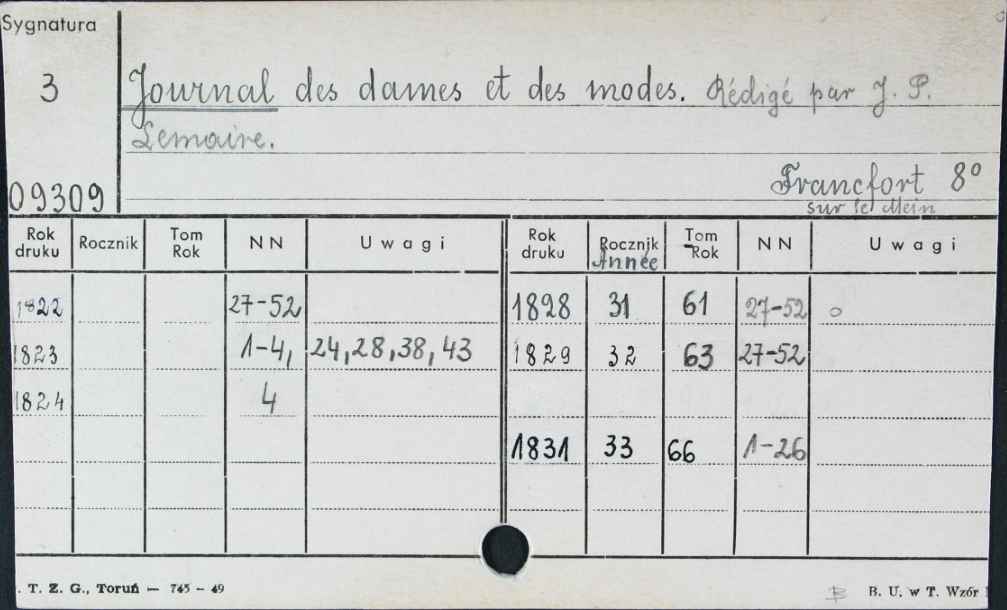 Sygnatura
3
09309
Journal des dames et des modes. Rédigé par J. P.
Lemaire.
Francfort 8º
sur le Mein
Rok druku Rocznik Tom Rok NN Uwagi Rok druku Rocznik Année Tom Rok NN Uwagi
1822 27-52 1828 31 61 27-52 o
1823 1-4, 24, 28, 38, 43 1829 32 63 27-52
1824 4
1831 33 66 1-26
T. Z. G., Toruń — 745 - 49
B B. U. w T. Wzór